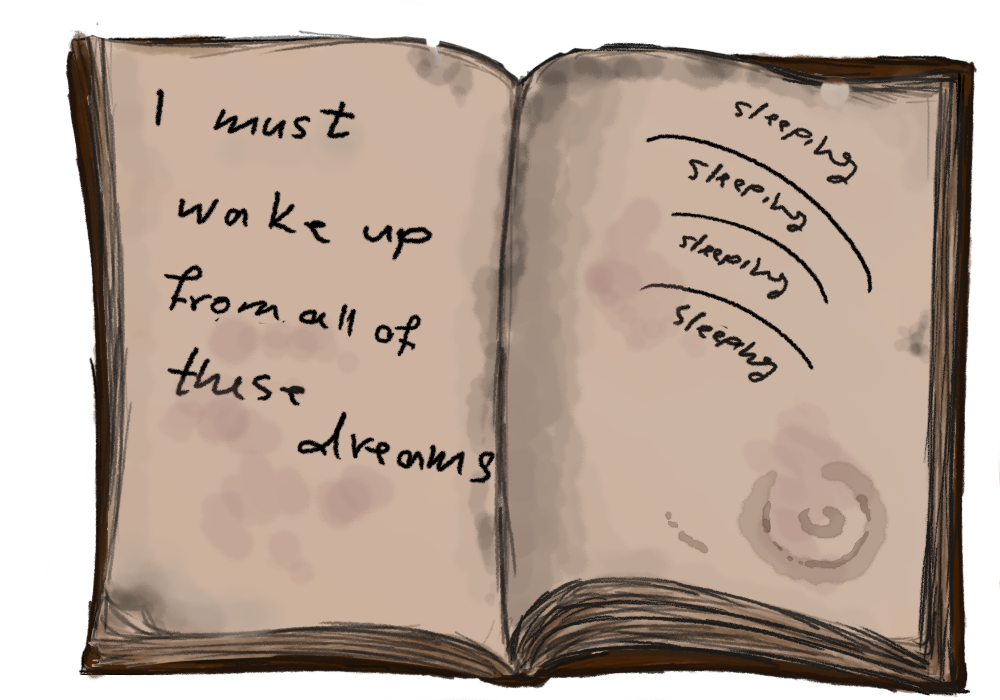 I must
wake up
from all of
these
dreams
sleeping
sleeping
sleeping
sleeping